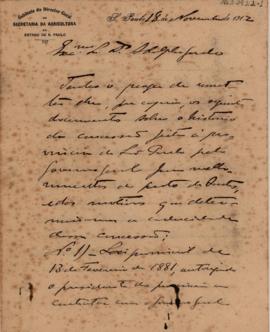 Gabinete do Director Geral
da
SECRETARIA DA AGRICULTURA
DO
ESTADO DE S. PAULO
S. Paulo, 18 de Novembro 1912
Exmo. Sr. Dr. Adolpho
Tenho o prazer de
os
documentos sobre o historico
da concessão feita á pro-
vincia de São Paulo pelo
Governo Geral
do porto de Santos,
e dos motivos que deter-
minaram a caducidade
dessa concessão:
Nº 1) - Lei provincial de
13 de Fevereiro de 1881, autorisando
o presidente da provincia a
contractar com o Governo Geral